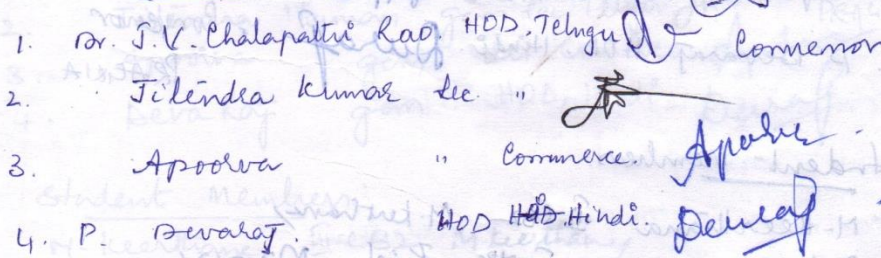 1. Dr. J.V. Chalapathi Rao. HOD. Telugu Convenor
2. Jitendra Kumar Lec. "
3. Apoorva " Commerce. Apoorva
4. P. Devaraj. HOD HOD. Hindi. Devaraj